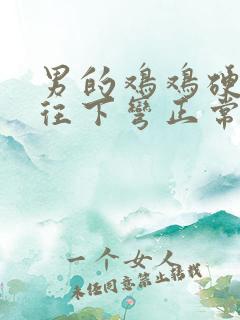 男的鸡鸡硬
往下弯正常
一个女人
未经同意禁止转载